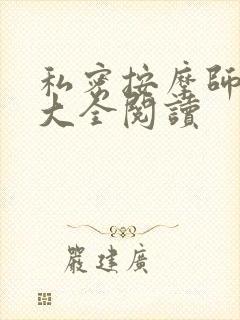 私密按摩師
大全閱讀
嚴建廣